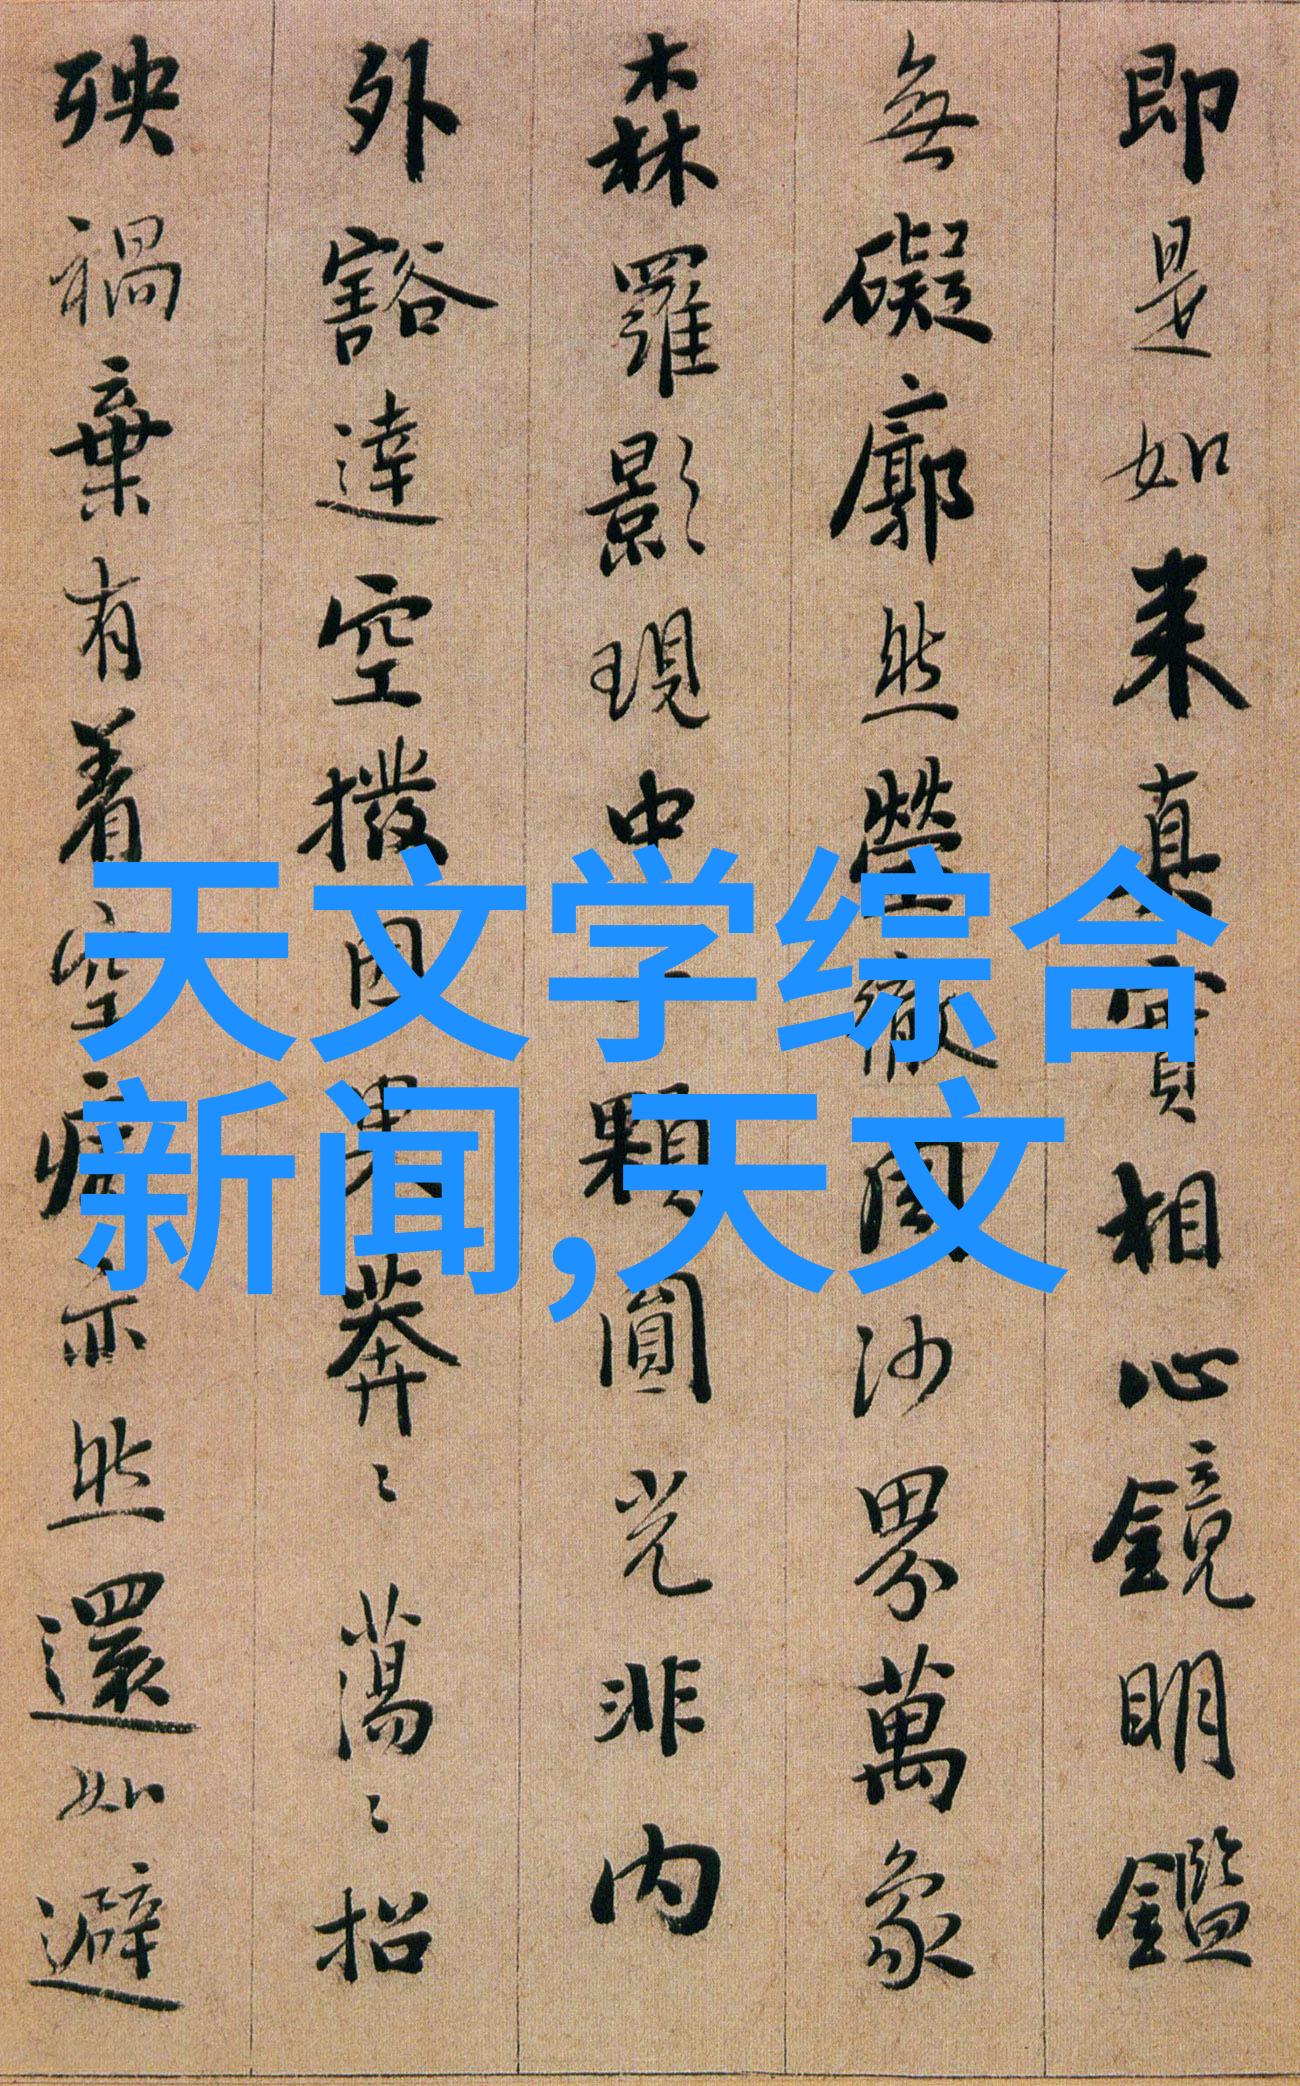 即是如来真實相心鏡明鑑
無礙廓然瑩徹周沙界萬象
森羅影現中一顆圓光非内
外豁達空撥因果莽〻蕩〻招
殃禍棄有着空病亦然還如避
天文学综合
新闻,天文